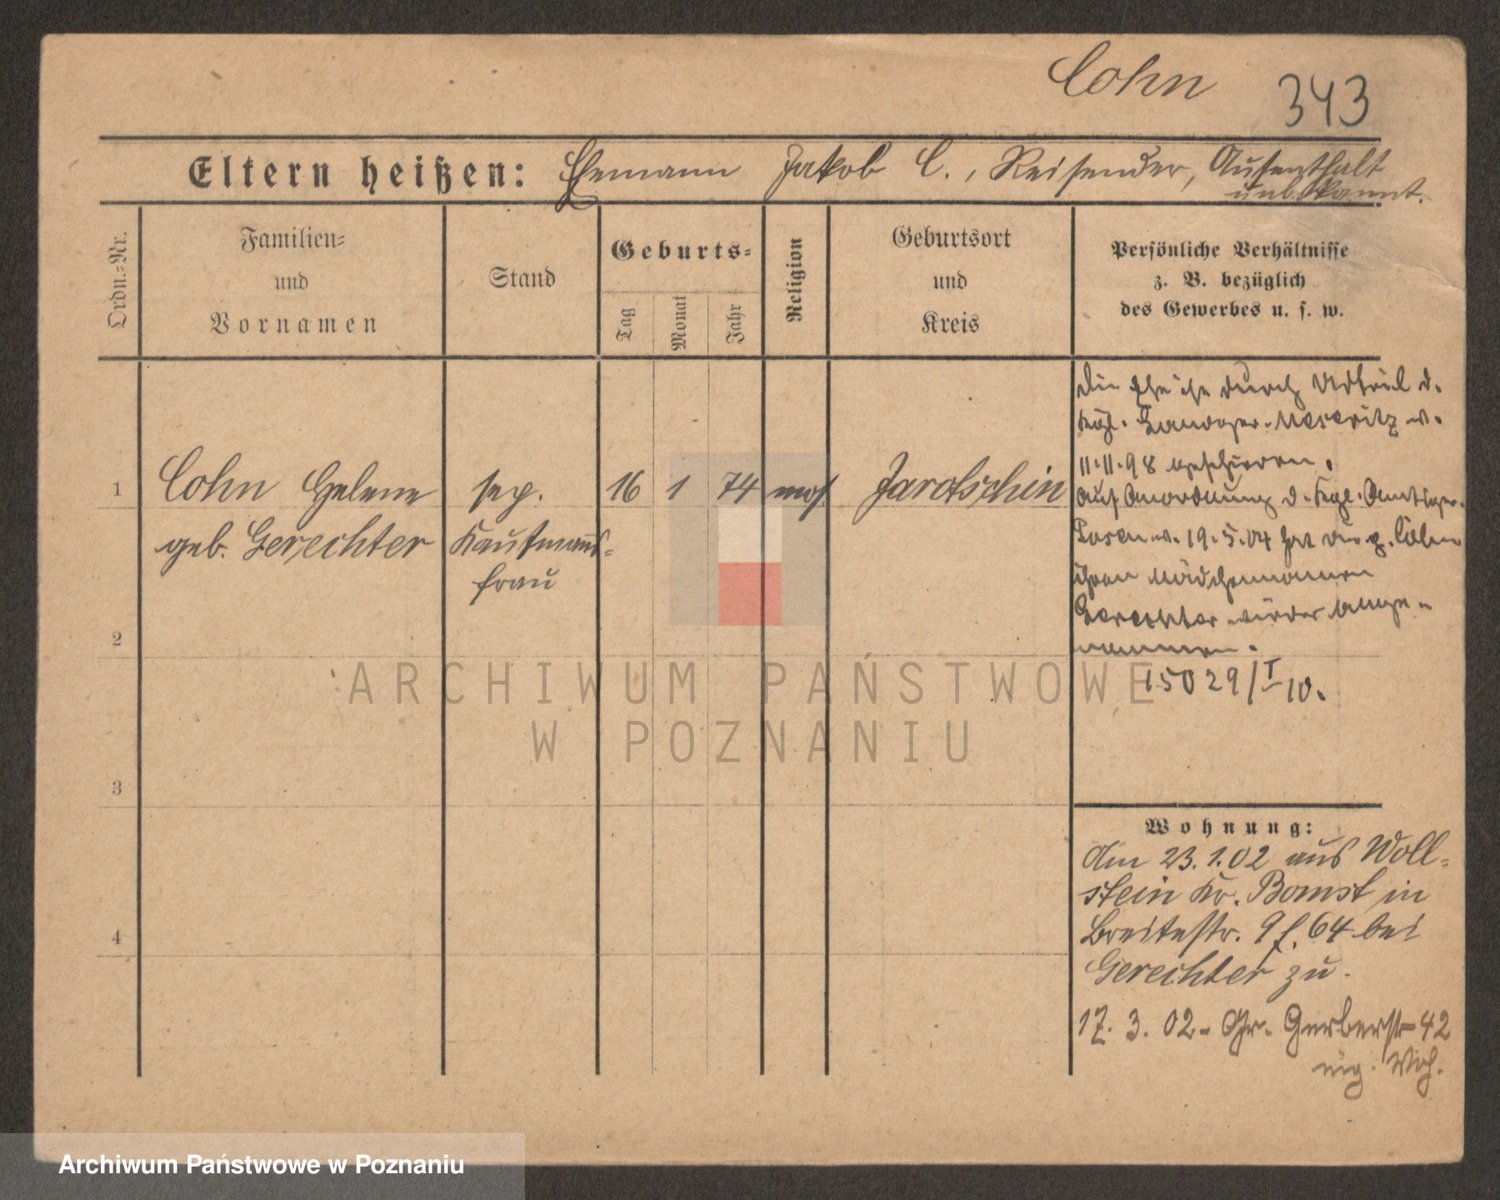 Cohn 343
Eltern heißen: Ehemann Jakob C., Reisender, Aufenthalt
unbekannt.
Ordn.=Nr.
Familien=
und
Vornamen
Stand
Geburts=
Tag
Monat
Jahr
Religion
Geburtsort
und
Kreis
Persönliche Verhältnisse
z. B. bezüglich
des Gewerbes u. s. w.
1 Cohn Helene sep. 16 1 74 mos. Jarotschin
geb. Gerechter Kaufmanns-
frau
2
3
4
Die Ehe ist durch Urteil d.
Kgl. Landger. Meseritz v.
11.11.98 geschieden.
Auf Anordnung d. Kgl. Amtsger.
Posen v. 19.5.04 hat die g. Cohn
ihren Mädchennamen
Gerechter wieder ange-
nommen.
15029/I 10.
Wohnung:
Am 23.1.02 aus Woll=
stein Kr. Bomst in
Breitestr. 9 f. 64 bei
Gerechter zu.
17. 3. 02 - Gr. Gerberstr 42
eig. Whg.
ARCHIWUM PAŃSTWOWE
W POZNANIU
Archiwum Państwowe w Poznaniu